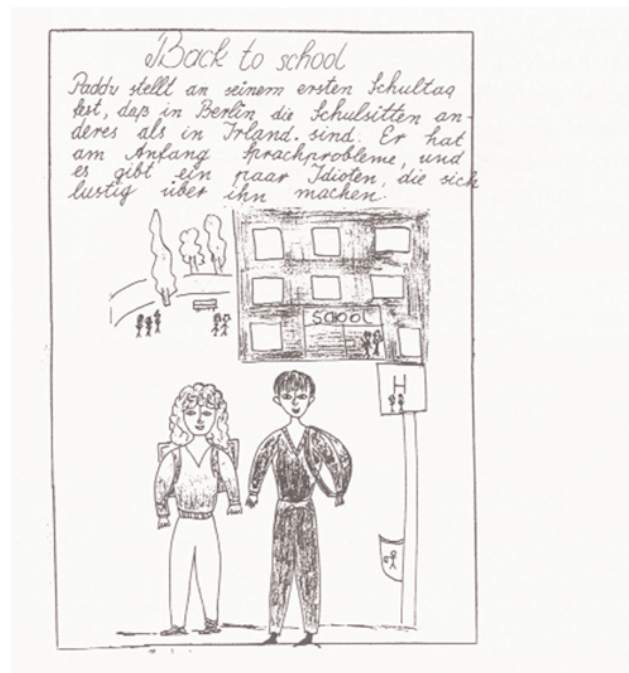 Back to school
Paddy stellt an seinem ersten Schultag
fest, daß in Berlin die Schulsitten an-
deres als in Irland. sind. Er hat
am Anfang Sprachprobleme, und
es gibt ein paar Idioten, die sich
lustig über ihn machen.
SCHOOL
H